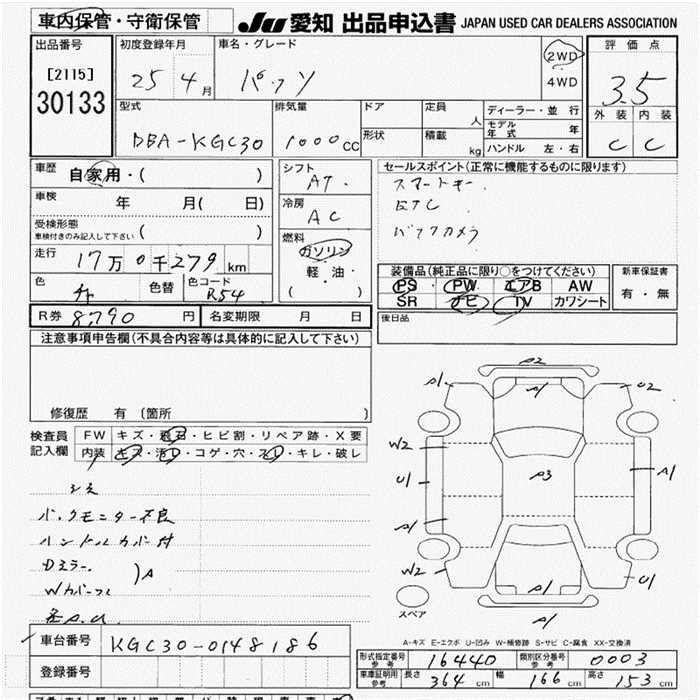 車内保管・守衛保管
JU 愛知 出品申込書 JAPAN USED CAR DEALERS ASSOCIATION
出品番号
[2115]
30133
初度登録年月
25年4月
車名・グレード
パッソ
2WD
4WD
評価点
3.5
外装 内装
C C
型式
DBA-KGC30
排気量
1000cc
ドア
形状
定員 人
積載 kg
ディーラー・並行
モデル年式 年
ハンドル 左・右
車歴
自家用・( )
車検
年 月( 日)
受検形態
車検付きのみ記入して下さい ( )
走行
17万0千279km
色
色替
色コード
R54
シフト
AT.
冷房
AC
燃料
ガソリン
軽・油・
( )
セールスポイント(正常に機能するものに限ります)
スマートキー.
ETC
バックカメラ
装備品(純正品に限り○をつけてください)
PS PW エアB AW
SR ナビ TV カワシート
新車保証書
有・無
後日品
R券 8,790円
名変期限 月 日
注意事項申告欄(不具合内容等は具体的に記入して下さい)
修復歴 有(箇所 )
検査員記入欄
FW キズ・飛石・ヒビ割・リペア跡・X要
内装 キズ・汚レ・コゲ・穴・スレ・キレ・破レ
バックモニター不良
ハンドルカバー付
Dミラー
)A
A2
A1 A1 U2
W2
U1 A3 A1
A1
W2 A1 U1
A1
スペア
A-キズ E-エクボ U-凹み W-補修跡 S-サビ C-腐食 XX-交換済
車台番号
KGC30-0148186
登録番号
形式指定番号 参考 16440
類別区分番号 参考 0003
車庫証明用 参考 長さ 364cm 幅 166cm 高さ 153cm